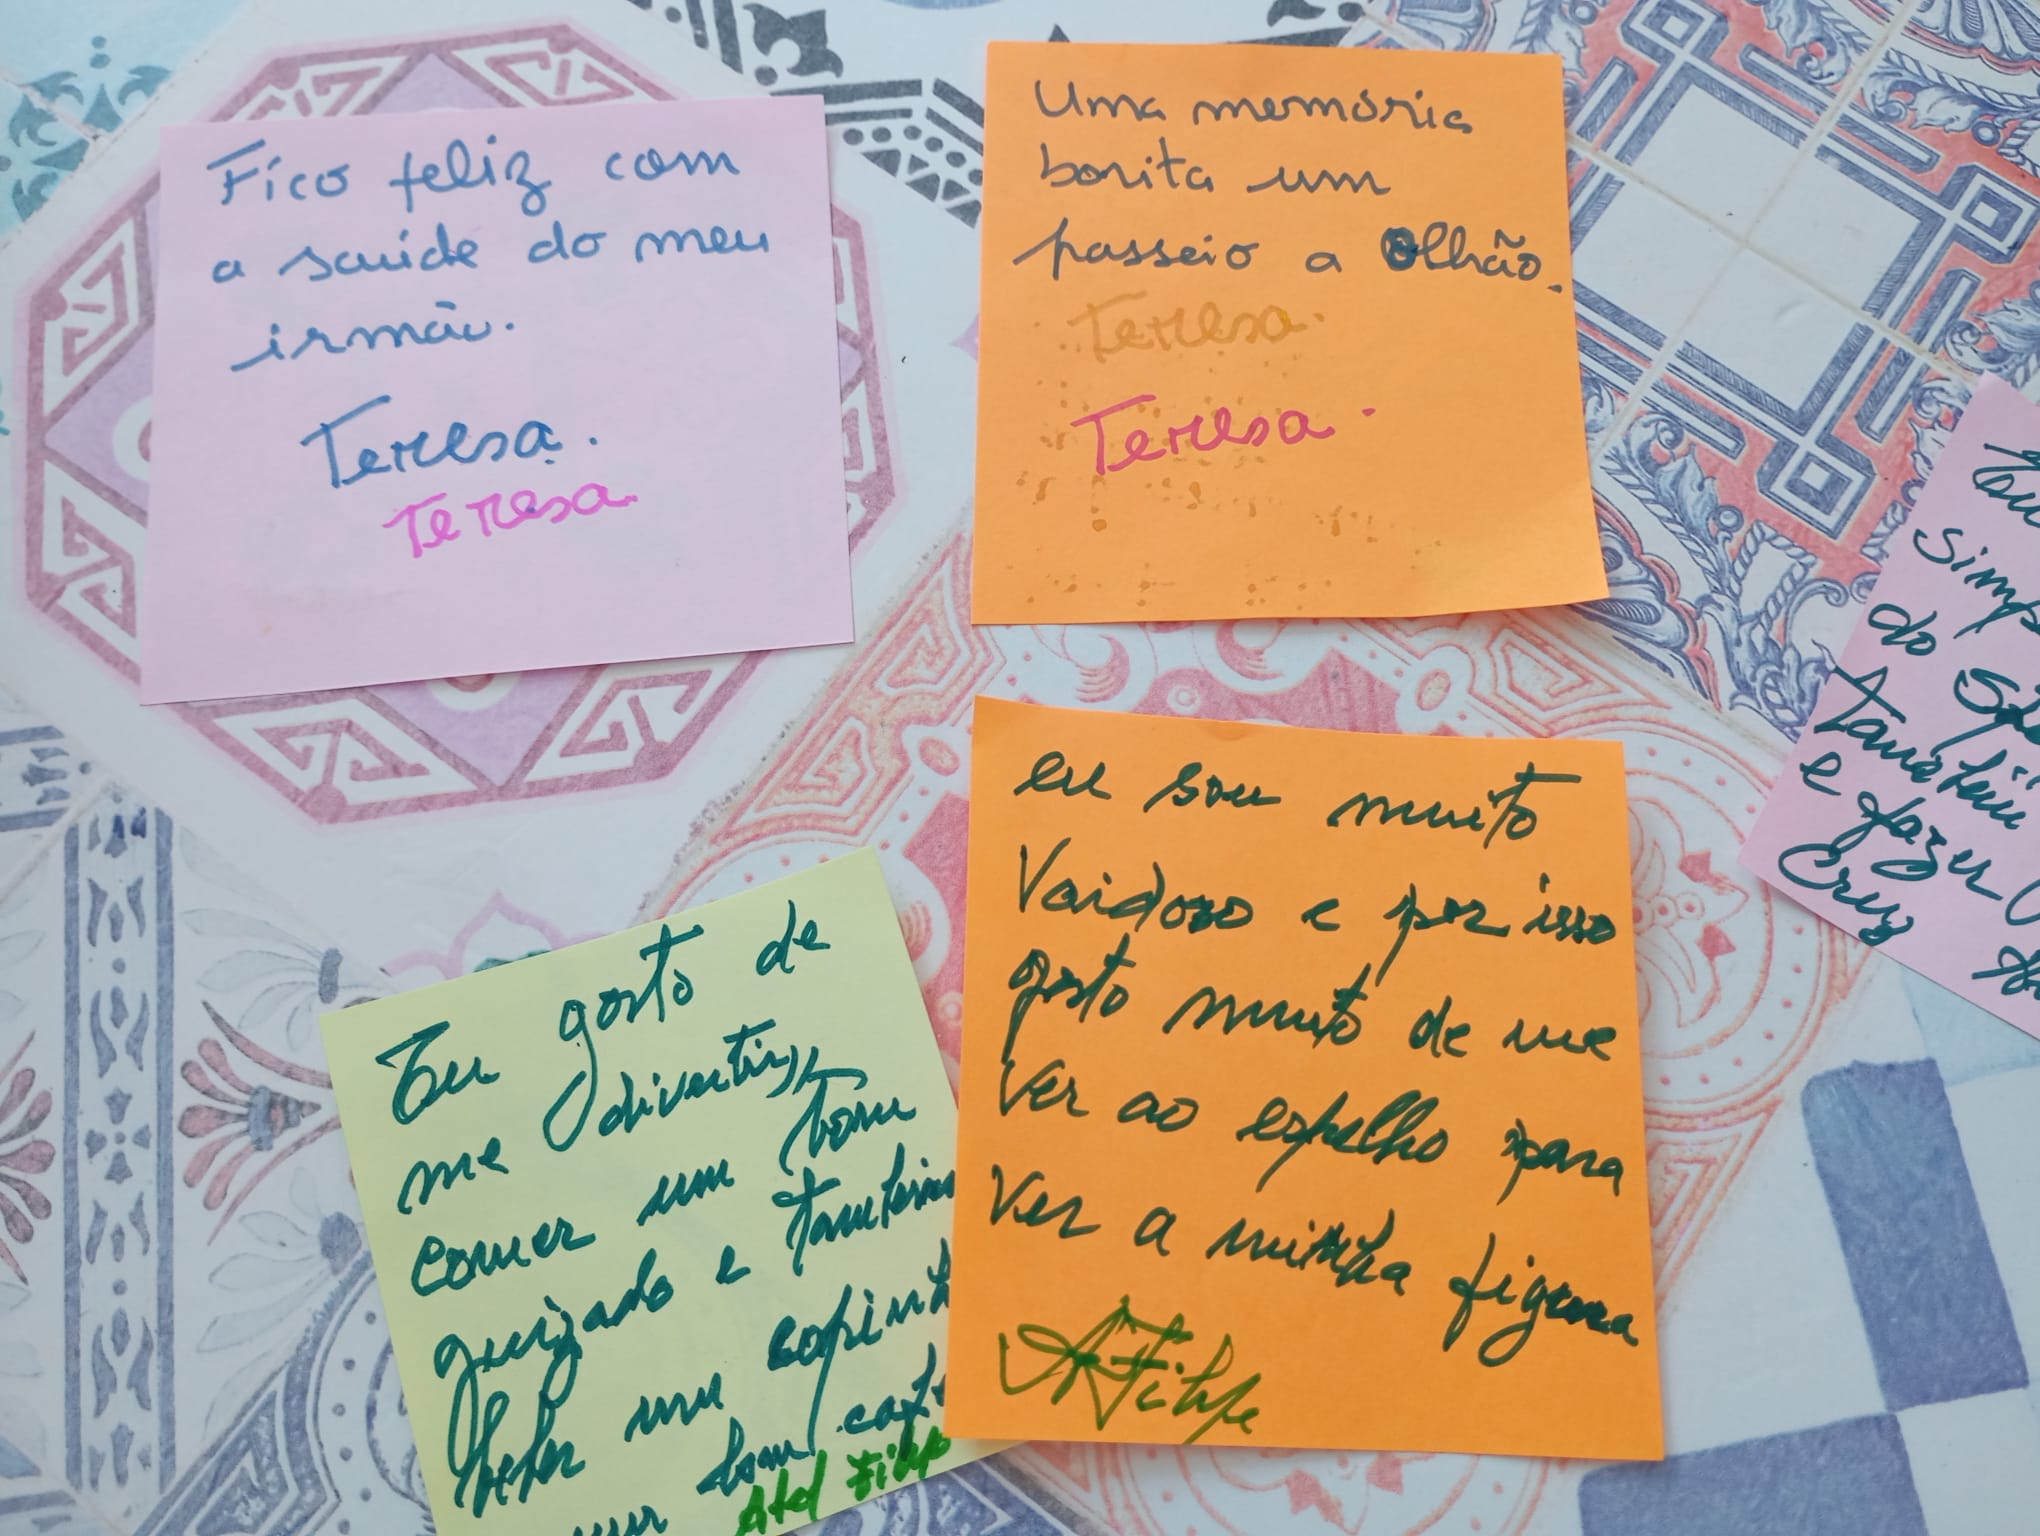 Fico feliz com
a saúde do meu
irmão.
Teresa.
Teresa.
Uma memória
bonita um
passeio a Olhão.
Teresa.
Teresa.
Eu gosto de
me divertir,
comer um bom
guizado e também
beber um copinh
um bom café
eu sou muito
Vaidoso e por isso
gosto muito de me
Ver ao espelho para
Ver a minha figura
AFilipe
simp
do
Também
e fazer
Cruz